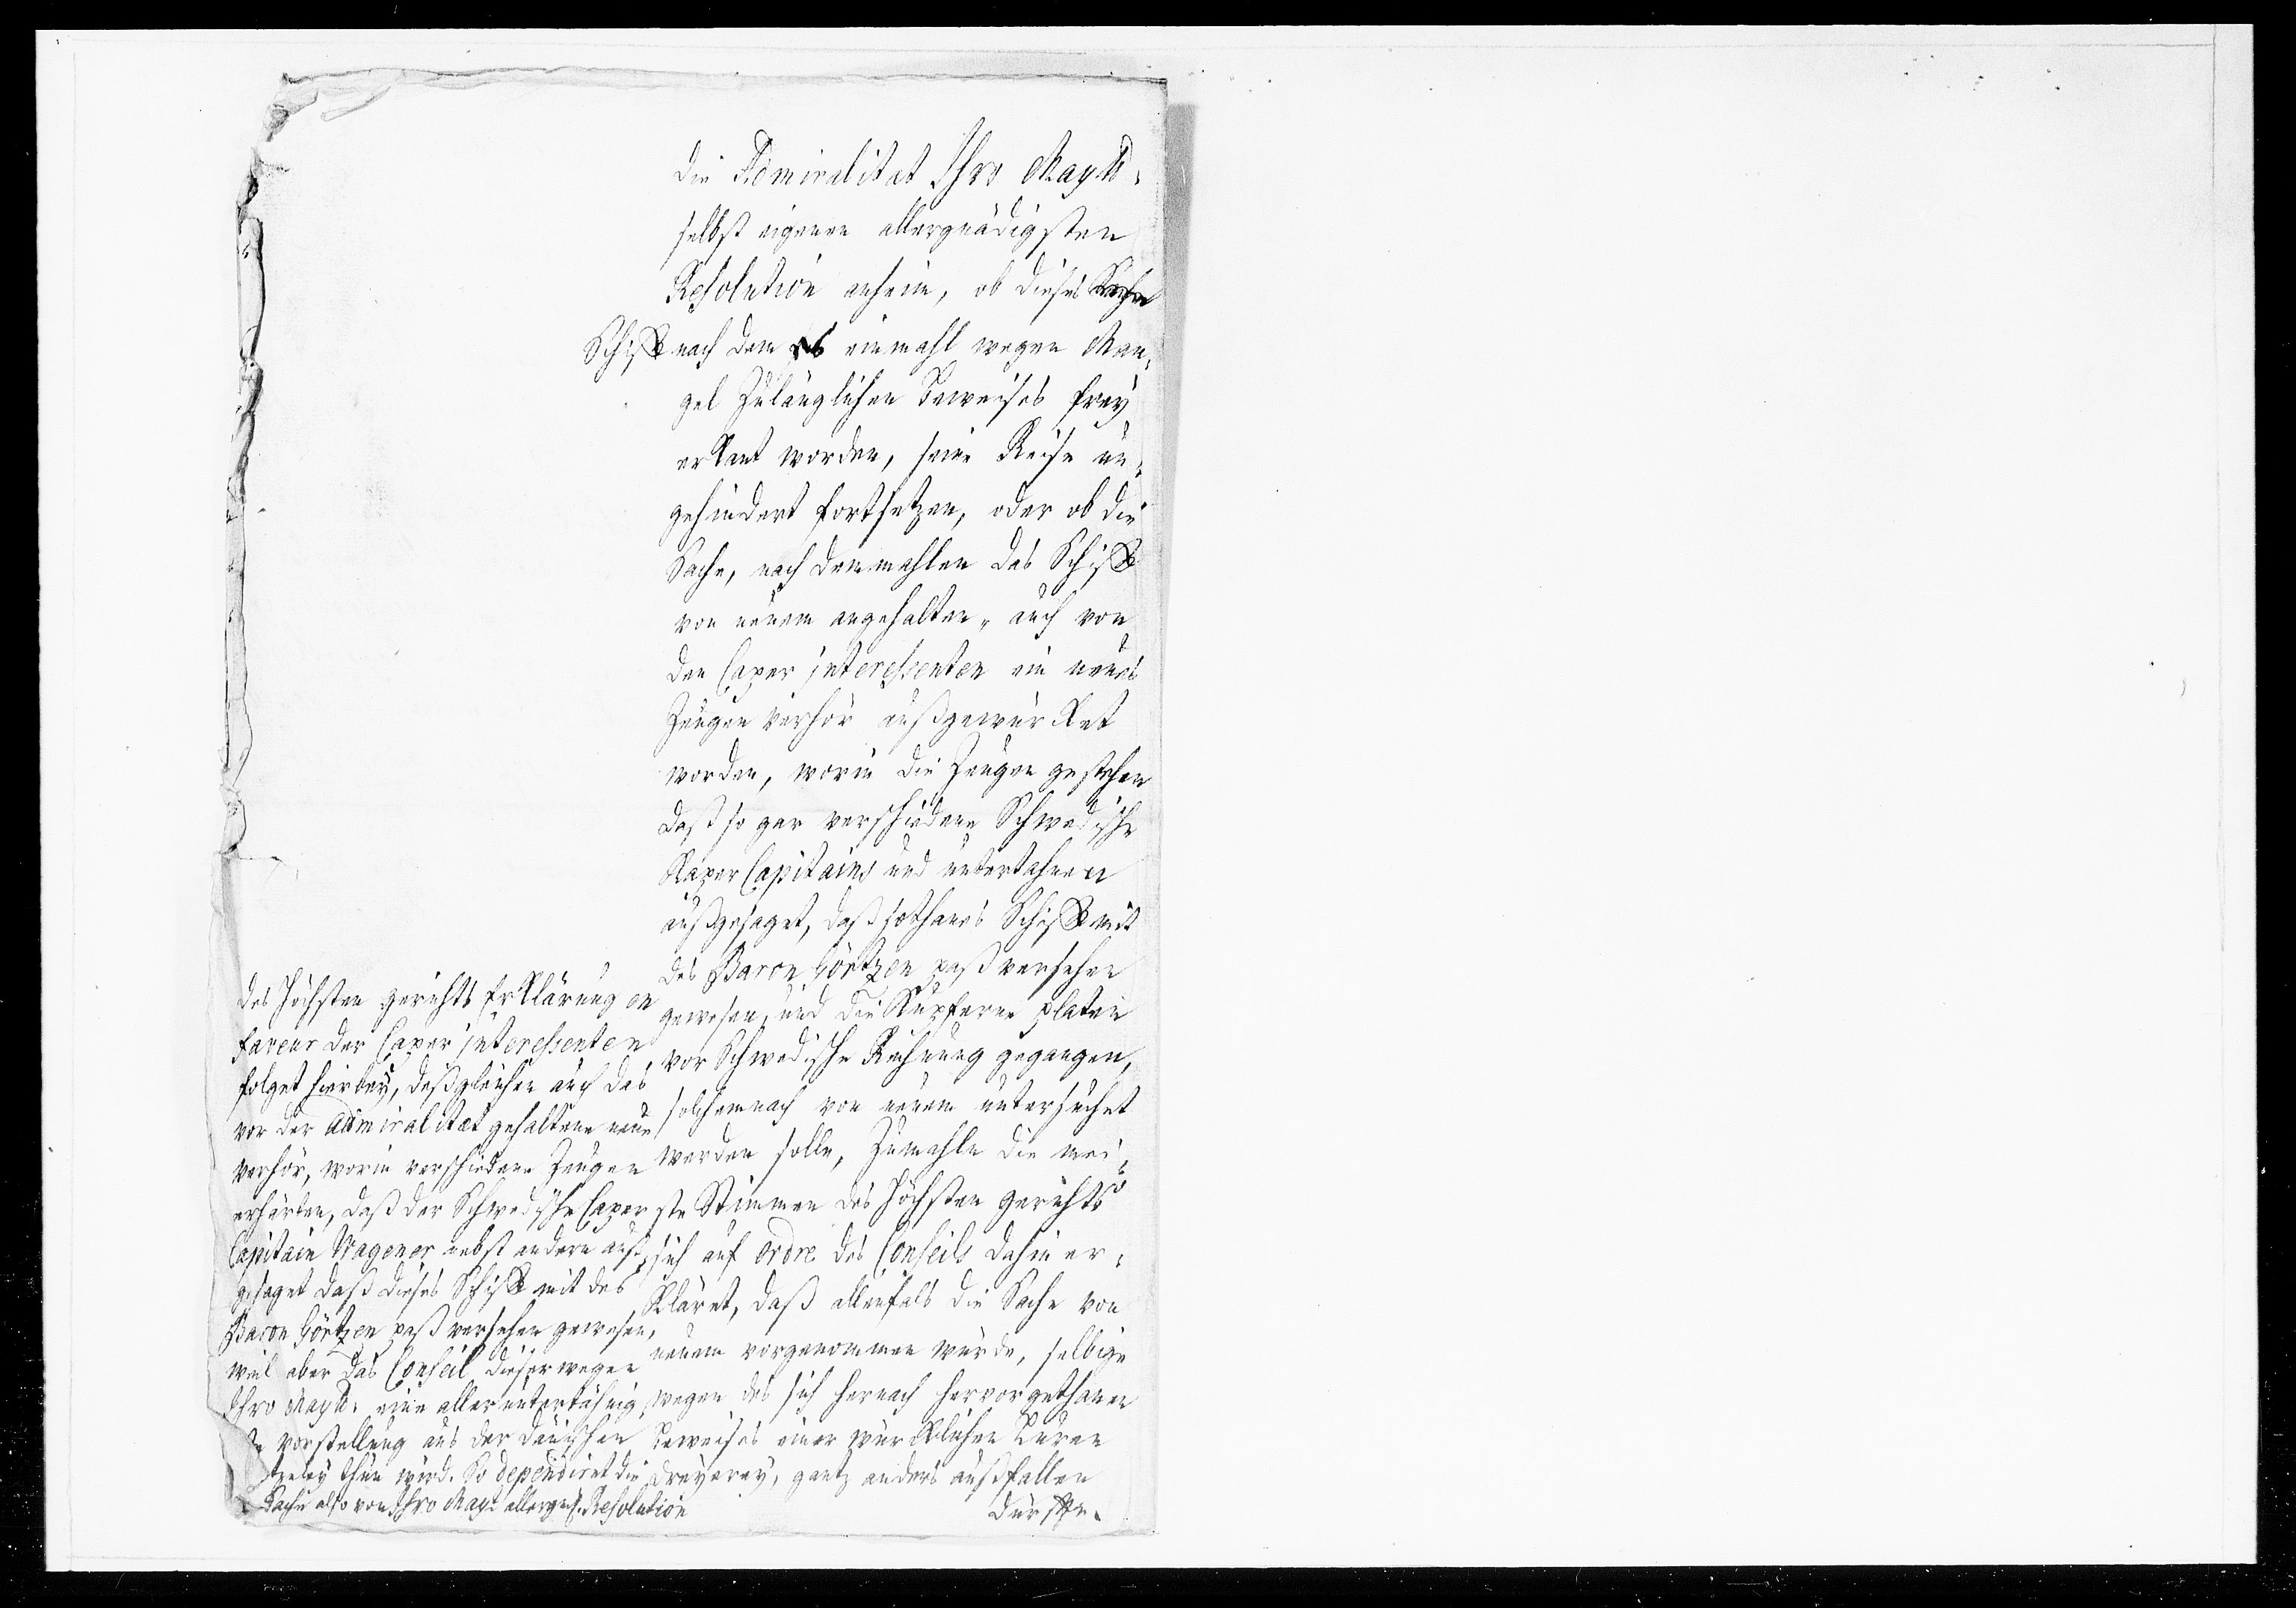 die Admiralitat Ihro Maytt:
selbst eigenen allergnädigsten
Resolution anheim, ob dieses
Schiff nach dem es einmahl wegen Man-
gel Zulänglichen Beweises frey
erkant worden, seine Reise un-
gehindert fortsetzen, oder ob die
Sache, nach demmahlen das Schiff
von neuem angehalten, auch von
den Caper interessenten ein neues
Zeugen verhör außgewürket
worden, worin die Zeugen gestehen
daß so gar verschiedene Schwedische
Kaper Capitains und untertahnen
außgesaget, daß sothanes Schiff mit
des Baron Görtzen paß versehen
gewesen, und die Kupferne platen
vor Schwedische Rechnung gegangen,
solchemnach von neuem untersuchet
werden solle, Zumahle die mei-
ste Stimmen des Höchsten gerichts
sich auf ordre des Conseils dahin er-
kläret, daß allenfals die Sache von
neuem vorgenommen würde, selbige
wegen des sich hernach hervorgethanen
Beweises einer würklichen Lurren
dreyerey, gantz anders außfallen
dürffte.
des Höchsten gerichts Erklärung en
faveur der Caper interessenten
folget hierbey, deßgleichen auch das
vor der Admiralitæt gehaltene neue
verhör, worin verschiedene Zeugen
erhärten, daß der Schwedische Caper
Capitain Wagener nebst andern auß-
gesaget daß dieses Schiff mit des
Baron Görtzen paß versehen gewesen,
weil aber das Conseil dieserwegen
Ihro Maytt: eine alleruntertähnig-
ste vorstellung aus der Dänischen
tzeley thun wird. So dependiret die
Sache also von Ihro Mayt: allergnst. Resolution